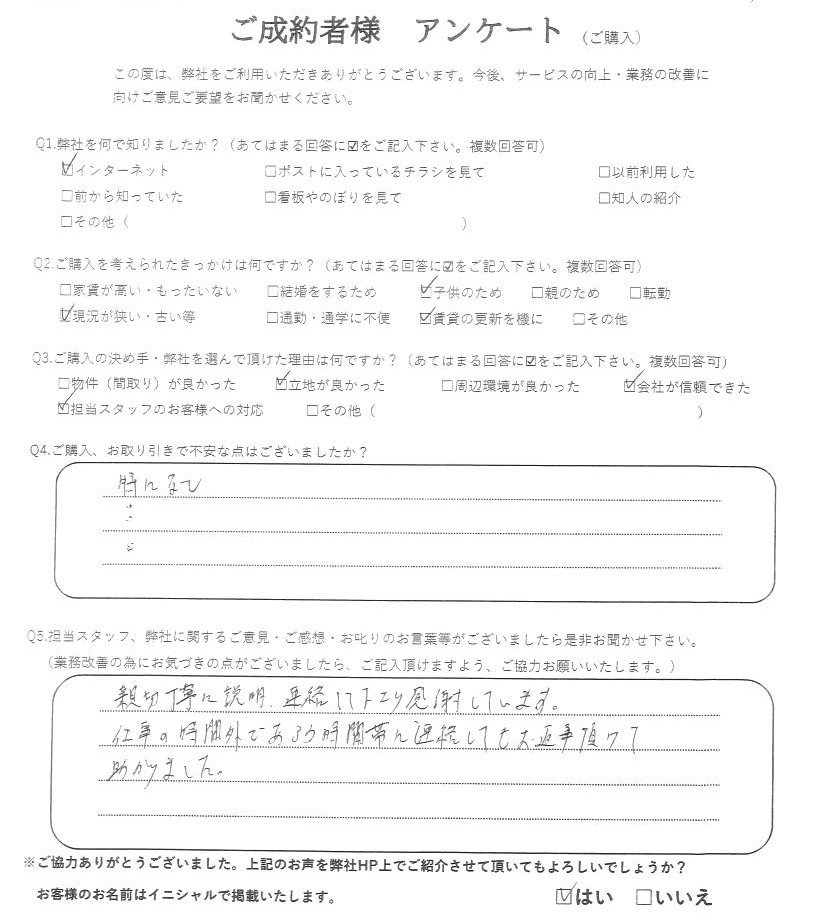 ご成約者様　アンケート（ご購入）
この度は、弊社をご利用いただきありがとうございます。今後、サービスの向上・業務の改善に
向けご意見ご要望をお聞かせください。
Q1.弊社を何で知りましたか？（あてはまる回答に☑をご記入下さい。複数回答可）
☑インターネット　□ポストに入っているチラシを見て　□以前利用した
□前から知っていた　□看板やのぼりを見て　□知人の紹介
□その他（　）
Q2.ご購入を考えられたきっかけは何ですか？（あてはまる回答に☑をご記入下さい。複数回答可）
□家賃が高い・もったいない　□結婚をするため　☑子供のため　□親のため　□転勤
☑現況が狭い・古い等　□通勤・通学に不便　☑賃貸の更新を機に　□その他
Q3.ご購入の決め手・弊社を選んで頂けた理由は何ですか？（あてはまる回答に☑をご記入下さい。複数回答可）
□物件（間取り）が良かった　☑立地が良かった　□周辺環境が良かった　☑会社が信頼できた
☑担当スタッフのお客様への対応　□その他（　）
Q4.ご購入、お取り引きで不安な点はございましたか？
特になし
Q5.担当スタッフ、弊社に関するご意見・ご感想・お叱りのお言葉等がございましたら是非お聞かせ下さい。
（業務改善の為にお気づきの点がございましたら、ご記入頂けますよう、ご協力お願いいたします。）
親切丁寧に説明、連絡して下さり感謝しています。
仕事の時間外であろう時間帯に連絡してもお返事頂けて
助かりました。
※ご協力ありがとうございました。上記のお声を弊社HP上でご紹介させて頂いてもよろしいでしょうか？
お客様のお名前はイニシャルで掲載いたします。　☑はい　□いいえ